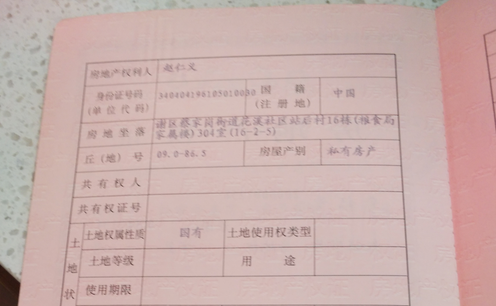 房地产权利人 赵仁义
身份证号码 340404196105010030 国籍 中国
(单位代码) (注册地)
房地坐落 谢区蔡家岗街道花溪社区站后村16栋(粮食局
家属楼)304室(16-2-5)
丘(地)号 09.0-86.5 房屋产别 私有房产
共有权人
共有权证号
土地权属性质 国有 土地使用权类型
土地等级 用途
使用期限
土地状